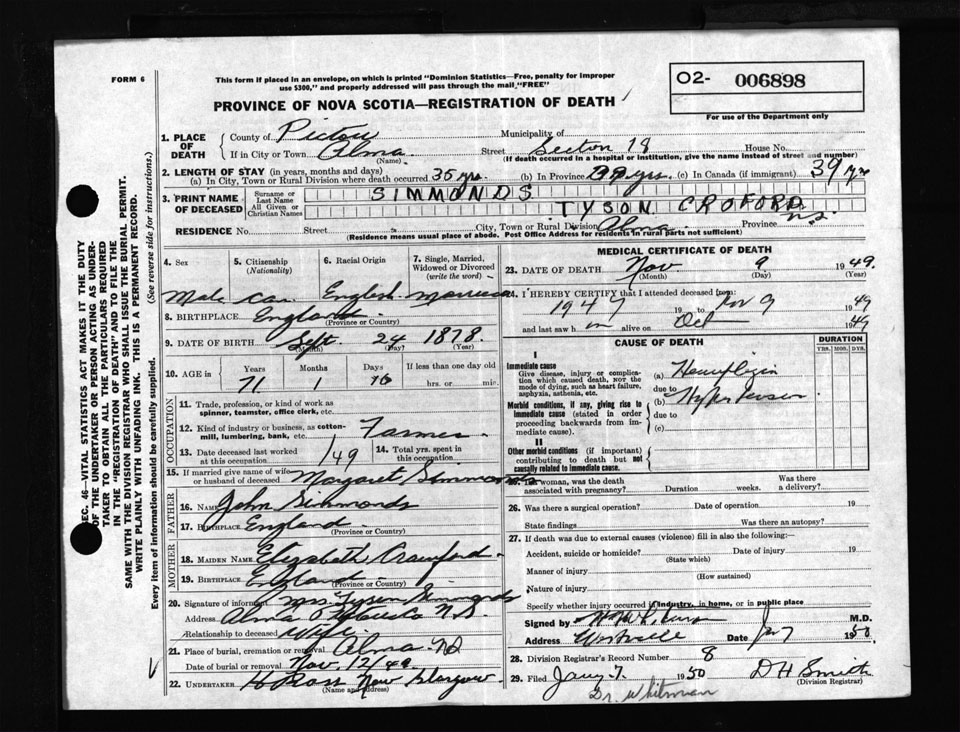 FORM 6
This form if placed in an envelope, on which is printed "Dominion Statistics—Free, penalty for improper
use $300," and properly addressed will pass through the mail "FREE"
O2- 006898
For use of the Department only
PROVINCE OF NOVA SCOTIA—REGISTRATION OF DEATH
SEC. 46—VITAL STATISTICS ACT MAKES IT THE DUTY
OF THE UNDERTAKER OR PERSON ACTING AS UNDER-
TAKER TO OBTAIN ALL THE PARTICULARS REQUIRED
IN THE "REGISTRATION OF DEATH" AND TO FILE THE
SAME WITH THE DIVISION REGISTRAR WHO SHALL ISSUE THE BURIAL PERMIT.
WRITE PLAINLY WITH UNFADING INK. THIS IS A PERMANENT RECORD.
Every item of information should be carefully supplied. (See reverse side for instructions.)
1. PLACE OF DEATH County of Pictou Municipality of
If in City or Town Alma Street Section 18 House No.
(Name) (If death occurred in a hospital or institution, give the name instead of street and number)
2. LENGTH OF STAY (in years, months and days)
(a) In City, Town or Rural Division where death occurred 35 yrs. (b) In Province 39 yrs. (c) In Canada (if immigrant) 39 yrs
3. PRINT NAME OF DECEASED Surname or Last Name SIMMONDS
All Given or Christian Names TYSON CROFORD
RESIDENCE No. Street City, Town or Rural Division Alma Province N.S
(Residence means usual place of abode. Post Office Address for residents in rural parts not sufficient)
4. Sex 5. Citizenship (Nationality) 6. Racial Origin 7. Single, Married, Widowed or Divorced (write the word)
Male Can English Married
8. BIRTHPLACE England
(Province or Country)
9. DATE OF BIRTH Sept. 24 1878
(Month) (Day) (Year)
10. AGE in Years Months Days If less than one day old
71 1 16 hrs. or min.
OCCUPATION
11. Trade, profession, or kind of work as
spinner, teamster, office clerk, etc.
12. Kind of industry or business, as cotton-
mill, lumbering, bank, etc. Farmer
13. Date deceased last worked at this occupation 1/49 14. Total yrs. spent in this occupation
15. If married give name of wife or husband of deceased Margaret Simmonds
FATHER
16. Name John Simmonds
17. Birthplace England
MOTHER
18. Maiden Name Elizabeth Crawford
19. Birthplace England
(Province or Country)
20. Signature of informant Mrs Tyson Simmonds
Address Alma N.S.
Relationship to deceased Wife
21. Place of burial, cremation or removal Alma NS
Date of burial or removal Nov. 12/49
22. UNDERTAKER H Ross New Glasgow
(Name and address)
MEDICAL CERTIFICATE OF DEATH
23. DATE OF DEATH Nov. 9 1949.
(Month) (Day) (Year)
24. I HEREBY CERTIFY that I attended deceased from:
1947 19 to Nov 9 1949
and last saw him alive on Oct 1949
CAUSE OF DEATH DURATION
YRS. MOS. DYS.
I
Immediate cause
Give disease, injury or complication which caused death, nor the mode of dying, such as heart failure, asphyxia, asthenia, etc.
(a) Hemiplegia
due to
Morbid conditions, if any, giving rise to immediate cause (stated in order proceeding backwards from immediate cause).
(b) Hypertension
due to
(c)
II
Other morbid conditions (if important) contributing to death but not causally related to immediate cause.
25. If a woman, was the death associated with pregnancy? Duration weeks. Was there a delivery?
26. Was there a surgical operation? Date of operation 19
State findings Was there an autopsy?
27. If death was due to external causes (violence) fill in also the following:—
Accident, suicide or homicide? Date of injury 19
(State which)
Manner of injury
(How sustained)
Nature of injury
Specify whether injury occurred in industry, in home, or in public place
Signed by M.D.
Address Westville Date Jan 7 1950.
28. Division Registrar's Record Number 8
29. Filed Jany. 7. 1950 DH Smith
(Division Registrar)
Dr. Whitman